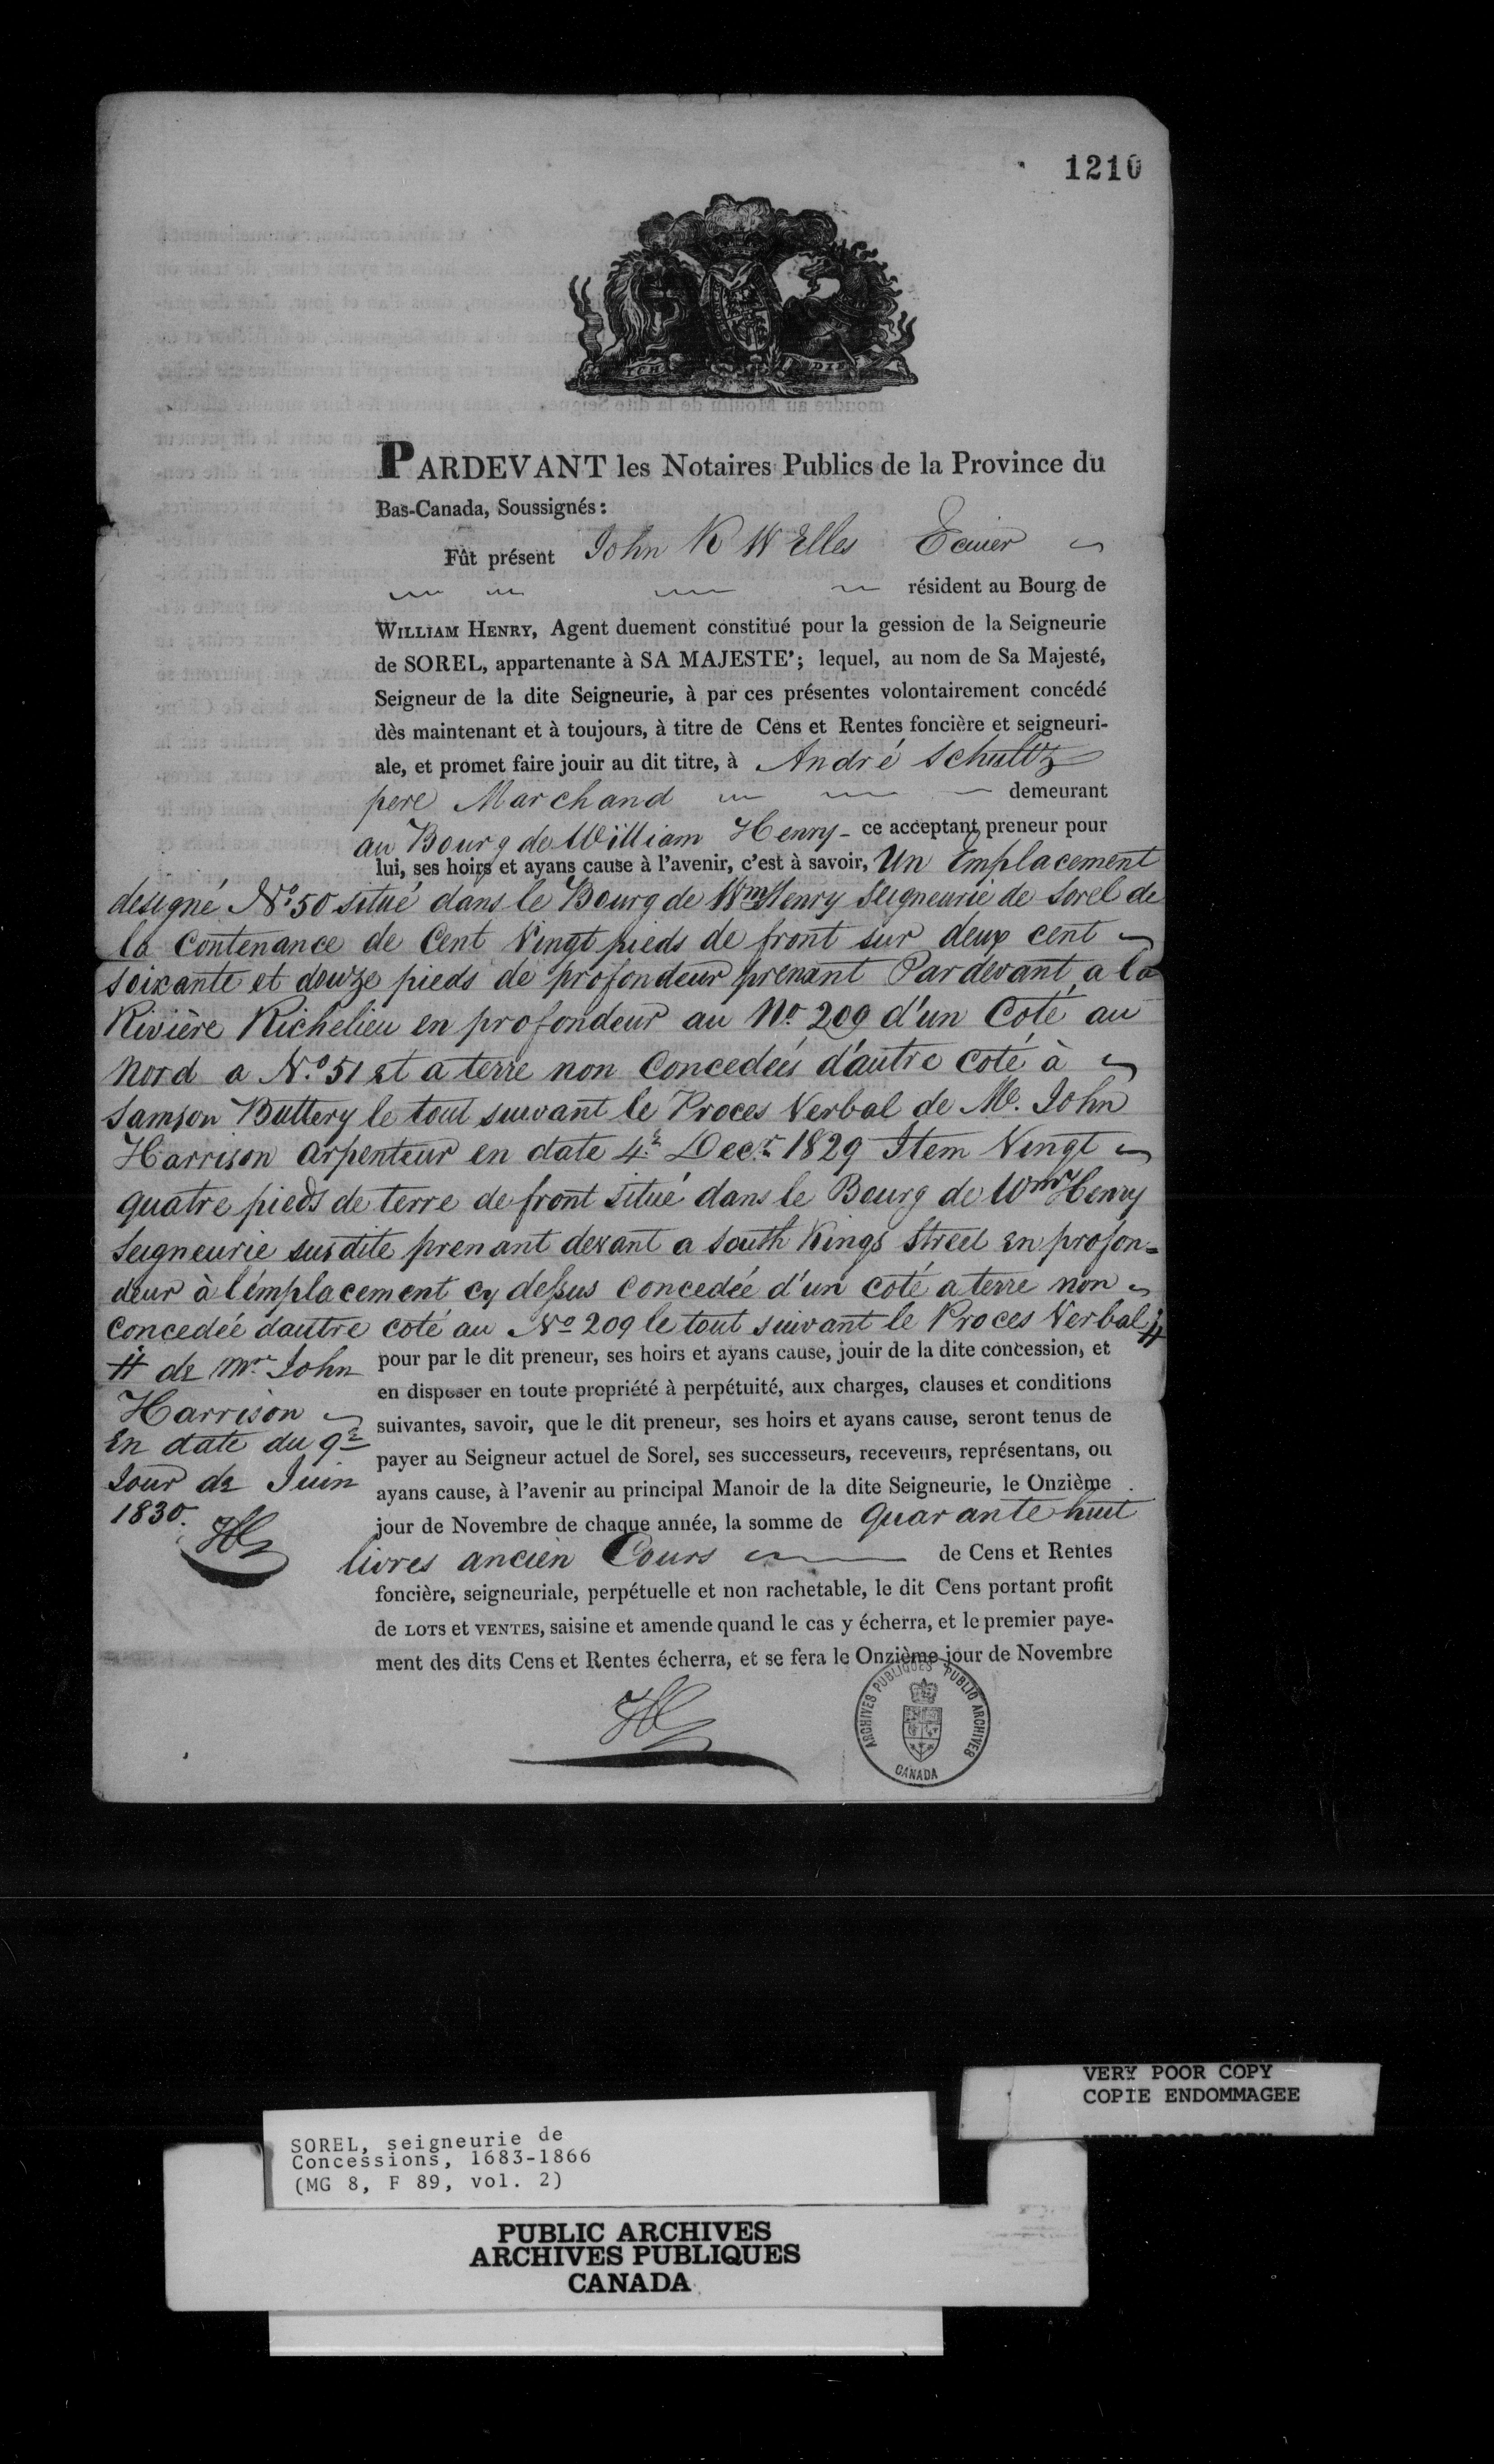 1210
PARDEVANT les Notaires Publics de la Province du
Bas-Canada, Soussignés:
Fût présent John K W Elles Ecuier
résident au Bourg de
WILLIAM HENRY, Agent duement constitué pour la gession de la Seigneurie
de SOREL, appartenante à SA MAJESTE'; lequel, au nom de Sa Majesté,
Seigneur de la dite Seigneurie, à par ces présentes volontairement concédé
dès maintenant et à toujours, à titre de Cens et Rentes foncière et seigneuri-
ale, et promet faire jouir au dit titre, à André Schultz
pere Marchand demeurant
au Bourg de William Henry - ce acceptant preneur pour
lui, ses hoirs et ayans cause à l'avenir, c'est à savoir, Un Emplacement
designé No. 50 situé dans le Bourg de Wm Henry Seigneurie de Sorel de
la Contenance de Cent Vingt pieds de front sur deux cent
soixante et douze pieds de profondeur prenant Pardevant a la
Rivière Richelieu en profondeur au No. 209 d'un Coté au
Nord a No. 51 et a terre non Concedées d'autre coté à
Samson Buttery le tout suivant le Proces Verbal de Mr. John
Harrison arpenteur en date 4e Decr. 1829 Item Vingt
quatre pieds de terre de front situé dans le Bourg de Wm Henry
Seigneurie susdite prenant devant a South Kings Street en profon=
deur à l'emplacement cy dessus concedée d'un coté a terre non
concedée dautre coté au No 209 le tout suivant le Proces Verbal #
# de Mr. John
Harrison
En date du 9e
Jour de Juin
1830.
pour par le dit preneur, ses hoirs et ayans cause, jouir de la dite concession, et
en disposer en toute propriété à perpétuité, aux charges, clauses et conditions
suivantes, savoir, que le dit preneur, ses hoirs et ayans cause, seront tenus de
payer au Seigneur actuel de Sorel, ses successeurs, receveurs, représentans, ou
ayans cause, à l'avenir au principal Manoir de la dite Seigneurie, le Onzième
jour de Novembre de chaque année, la somme de quarante huit
livres ancien Cours de Cens et Rentes
foncière, seigneuriale, perpétuelle et non rachetable, le dit Cens portant profit
de LOTS et VENTES, saisine et amende quand le cas y écherra, et le premier paye-
ment des dits Cens et Rentes écherra, et se fera le Onzième jour de Novembre
ARCHIVES PUBLIQUES PUBLIC ARCHIVES
CANADA
VERY POOR COPY
COPIE ENDOMMAGEE
SOREL, seigneurie de
Concessions, 1683-1866
(MG 8, F 89, vol. 2)
PUBLIC ARCHIVES
ARCHIVES PUBLIQUES
CANADA